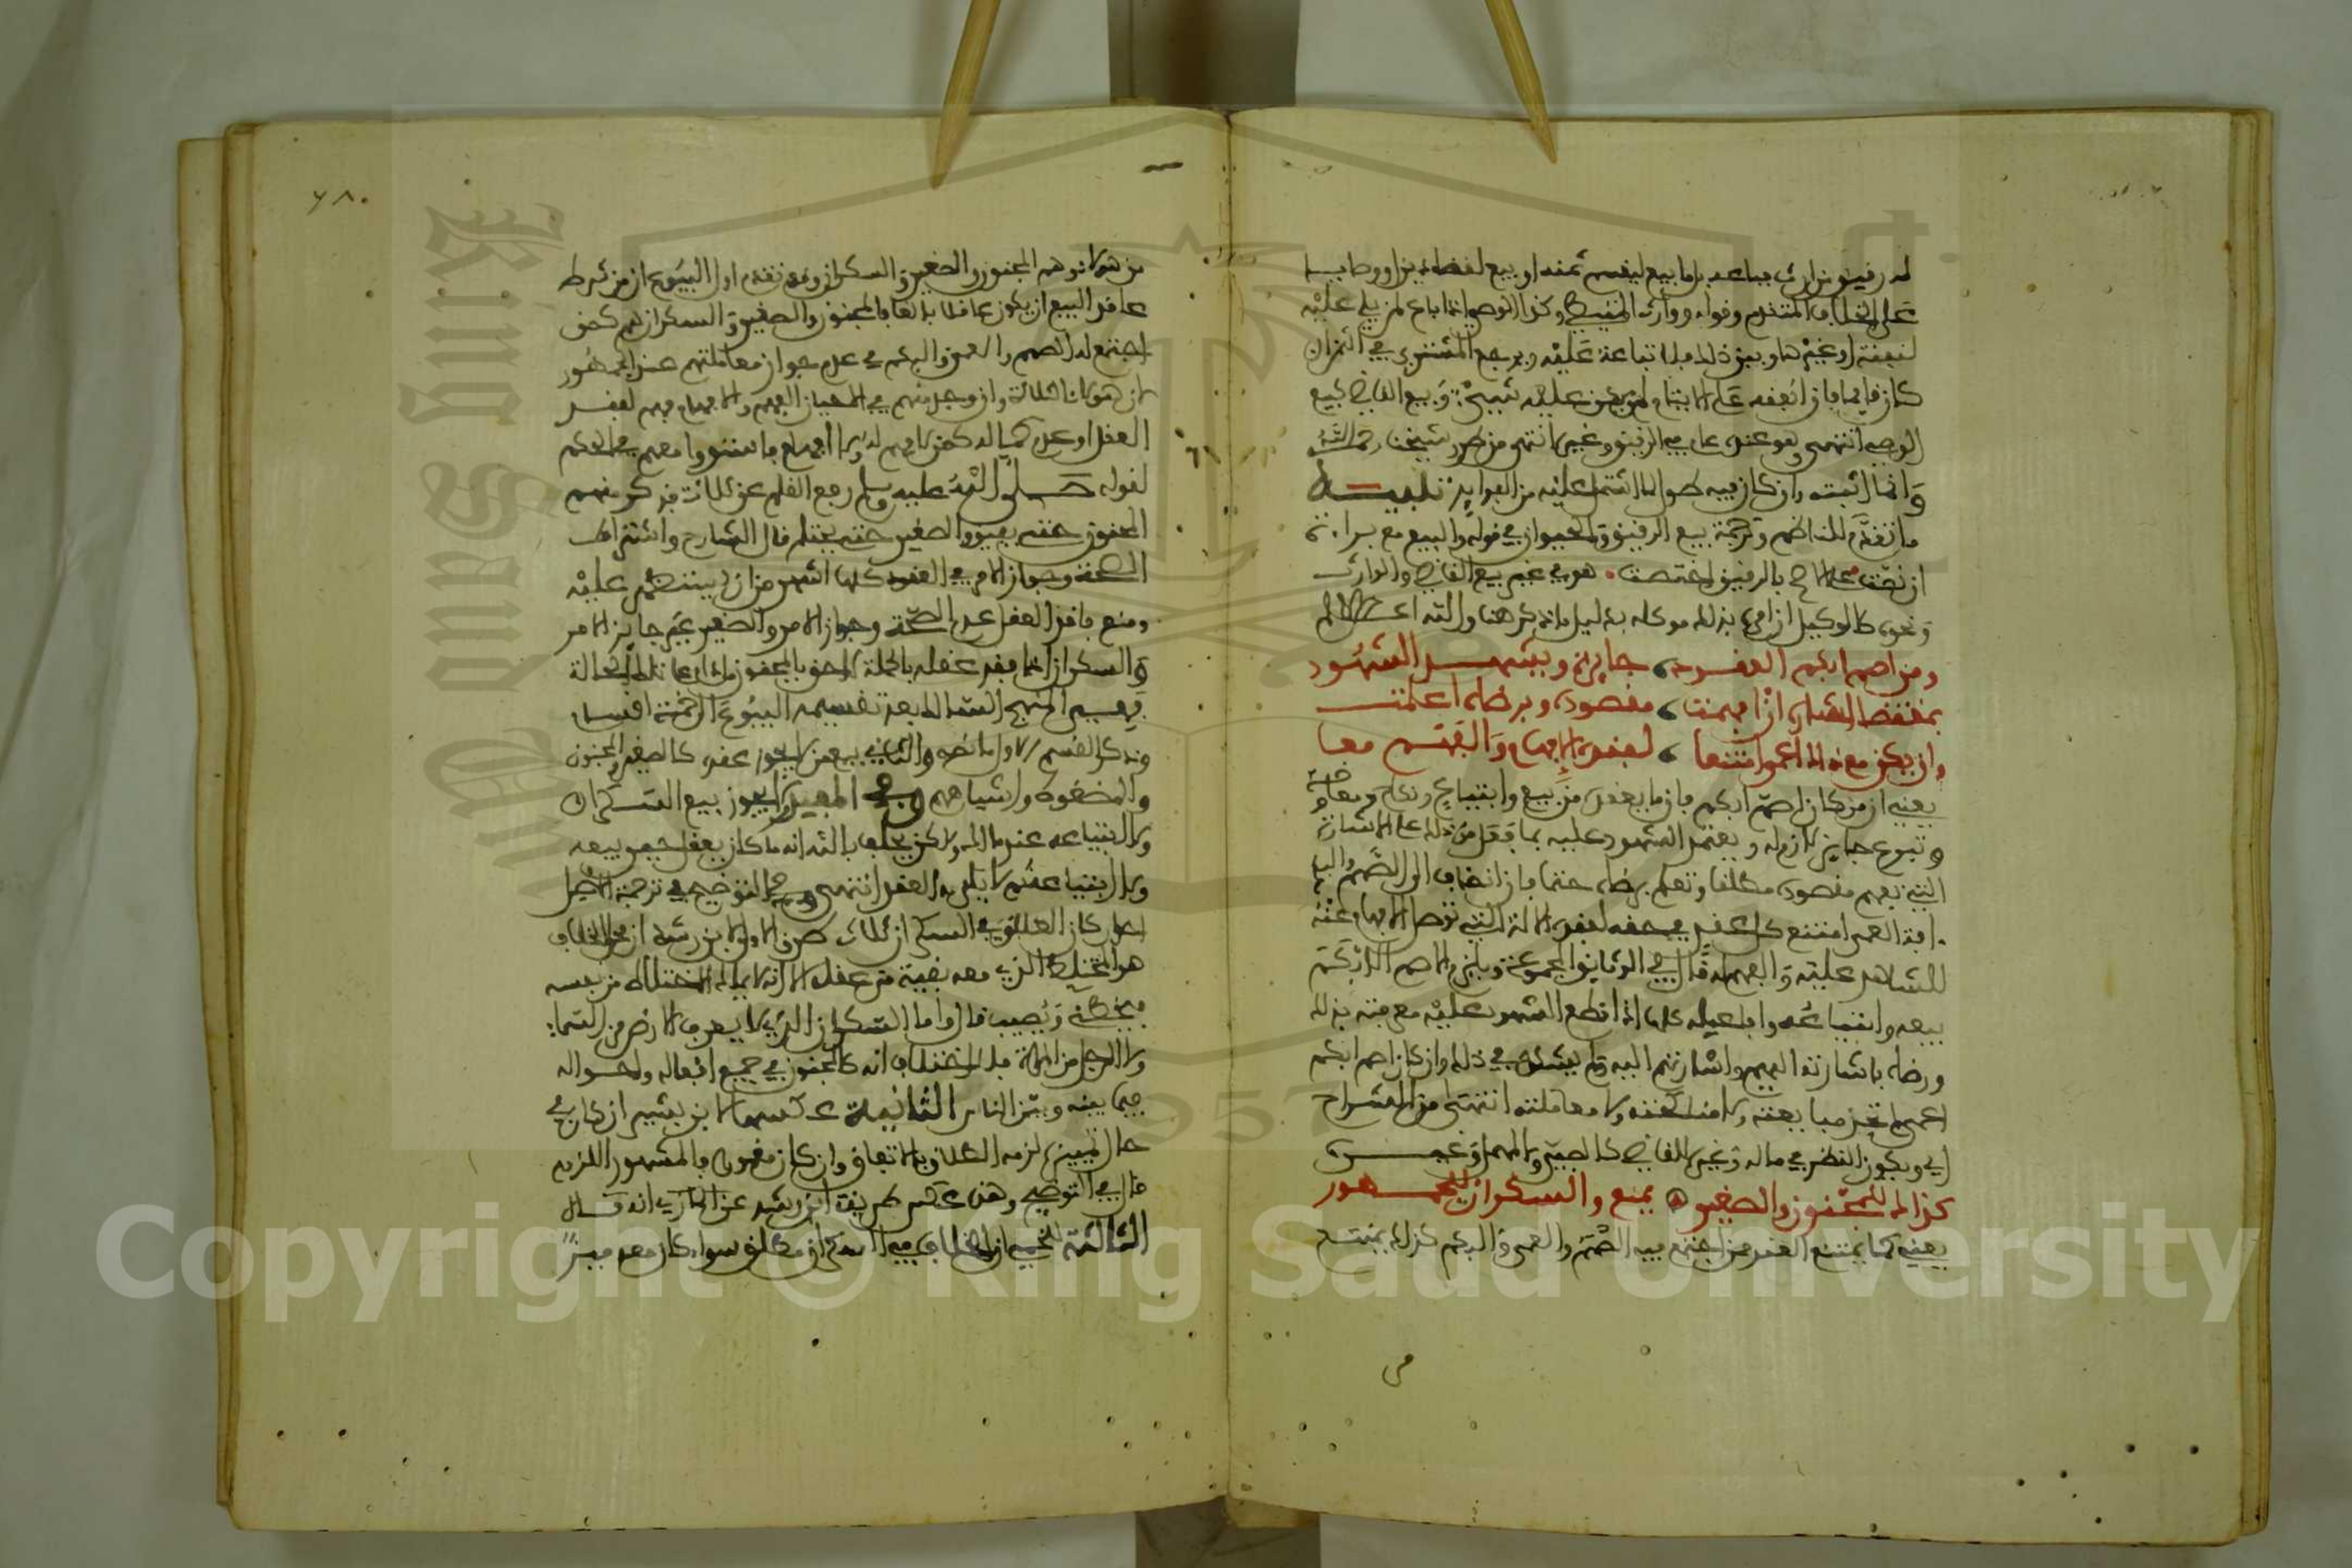 على الخلاف المتقدم وقوله ووارث وكذا الوصي إنما باع لمن يلي عليه
لنفقة أو غيرها وبيّن ذلك فلا تباعة عليه ويرجع المشتري في الثمن إن
كان قايما فإن أنفقه على الأيتام لم يكن عليهم شيء وبيع القاضي كبيع
الوصي انتهى وهو عندي عام في الرقيق وغيره انتهى من طرر شيخنا رحمه الله
وإنما أثبته وإن كان فيه طول لما اشتمل عليه من الفوايد تنبيه
ما تقدم للناظم في ترجمة بيع الرقيق والحيوان في قوله والبيع مع براءة
إن نصت على الأصح بالرقيق اختصت هو في غير بيع القاضي والوارث
ونحوه كالوكيل إن أمره بذلك موكله بدليل ما ذكر هنا والله أعلم
ومن أصم أبكم العقود جايزة ويشهد الشهود
بمقتضى إشارة إذا فهمت مقصوده وبرضاه أعلمت
وإن يكن مع ذاك أعمى امتنعا لفقده الإفهام والفهم معا
يعني أن من كان أصم أبكم فإن ما يعقده من بيع وابتياع ونكاح ومعاوضة
وتبرع جايز لازم له ويعتمد الشهود عليه بما فعل من ذلك على الإشارة
التي تفهم مقصوده مطلقا وتعلم برضاه حتما فإن انضاف إلى الصمم والبكم
آفة العمى امتنع كل عقد في حقه لفقد الآلة التي توصل الإفهام عنه
للشاهد عليه والفهم له قال في الوثايق المجموعة ويلزم الأصم الأبكم
بيعه وابتياعه وأفاعيله كلها إذا قطع الشهود عليه معرفته بذلك
ورضاه بإشارته إليهم وإشارتهم إليه ولم يشكوا في ذلك وإن كان أصم أبكم
أعمى لم تجز مبايعته ولا مناكحته ولا معاملته انتهى من الشراح
أي ويكون النظر في ماله وغيره للقاضي كالصبي والمهمل وغيره
كذاك للمجنون والصغير يمنع والسكران للجمهور
يعني كما يمتنع العقد ممن اجتمع فيه الصمم والعمى والبكم كذلك يمتنع
٢٨٠
من هؤلاء وهم المجنون والصغير والسكران وقد تقدم أول البيوع أن من شرط
عاقد البيع أن يكون عاقلا بالغا فالمجنون والصغير والسكران هم كمن
اجتمع له الصمم والعمى والبكم في عدم جواز معاملتهم عند الجمهور
لأن هؤلاء الثلاثة وإن وجد منهم في الأحيان الفهم والإفهام فهم لفقد
العقل أو عدم كماله كمن لا فهم له ولا إفهام فاستووا معهم في الحكم
لقوله صلى الله عليه وسلم رفع القلم عن ثلاث فذكر منهم
المجنون حتى يفيق والصغير حتى يحتلم قال الشارح واشتراط
الصحة وجواز الأمر في العقود كلها أشهر من أن يستظهر عليه
ومنع فاقد العقل عدم الصحة وجواز الأمر والصغير غير جايز الأمر
والسكران إنما فقد عقله بالجملة لاحق بالمجنون ما دام على تلك الحالة
وفي المنهج السالك بعد تقسيمه البيوع إلى خمسة أقسام
وذكر القسم الأول ما نصه والثاني بيع من لا يجوز عقده كالصغير والمجنون
والمضغوط وأشباههم وفي المفيد لا يجوز بيع السكران
ولا ابتياعه عند مالك ولكن يحلف بالله أنه ما كان يعقل حين بيعه
ولا ابتياعه ثم لا يلزمه العقد انتهى وفي التوضيح في ترجمة
الطلاق في السكران ثلاث طرق الأولى لابن رشد أن محل الخلاف
هو المختلط الذي معه بقية من عقله إلا أنه لا يملك الاختلاط من نفسه
فيخطئ ويصيب قال وأما السكران الذي لا يعرف الأرض من السماء
ولا الرجل من المرأة فلا اختلاف أنه كالمجنون في جميع أفعاله وأحواله
فيما بينه وبين الناس الثانية عكسها لابن بشير إن كان في
حال تمييز لزمه الطلاق بالاتفاق وإن كان مغمورا فالمشهور اللزوم
قال في التوضيح وهذه عكس طريقة ابن رشد عن المازري أنه قال
الثالثة للخمي أن الخلاف في السكران مطلق سواء كان معه ميز